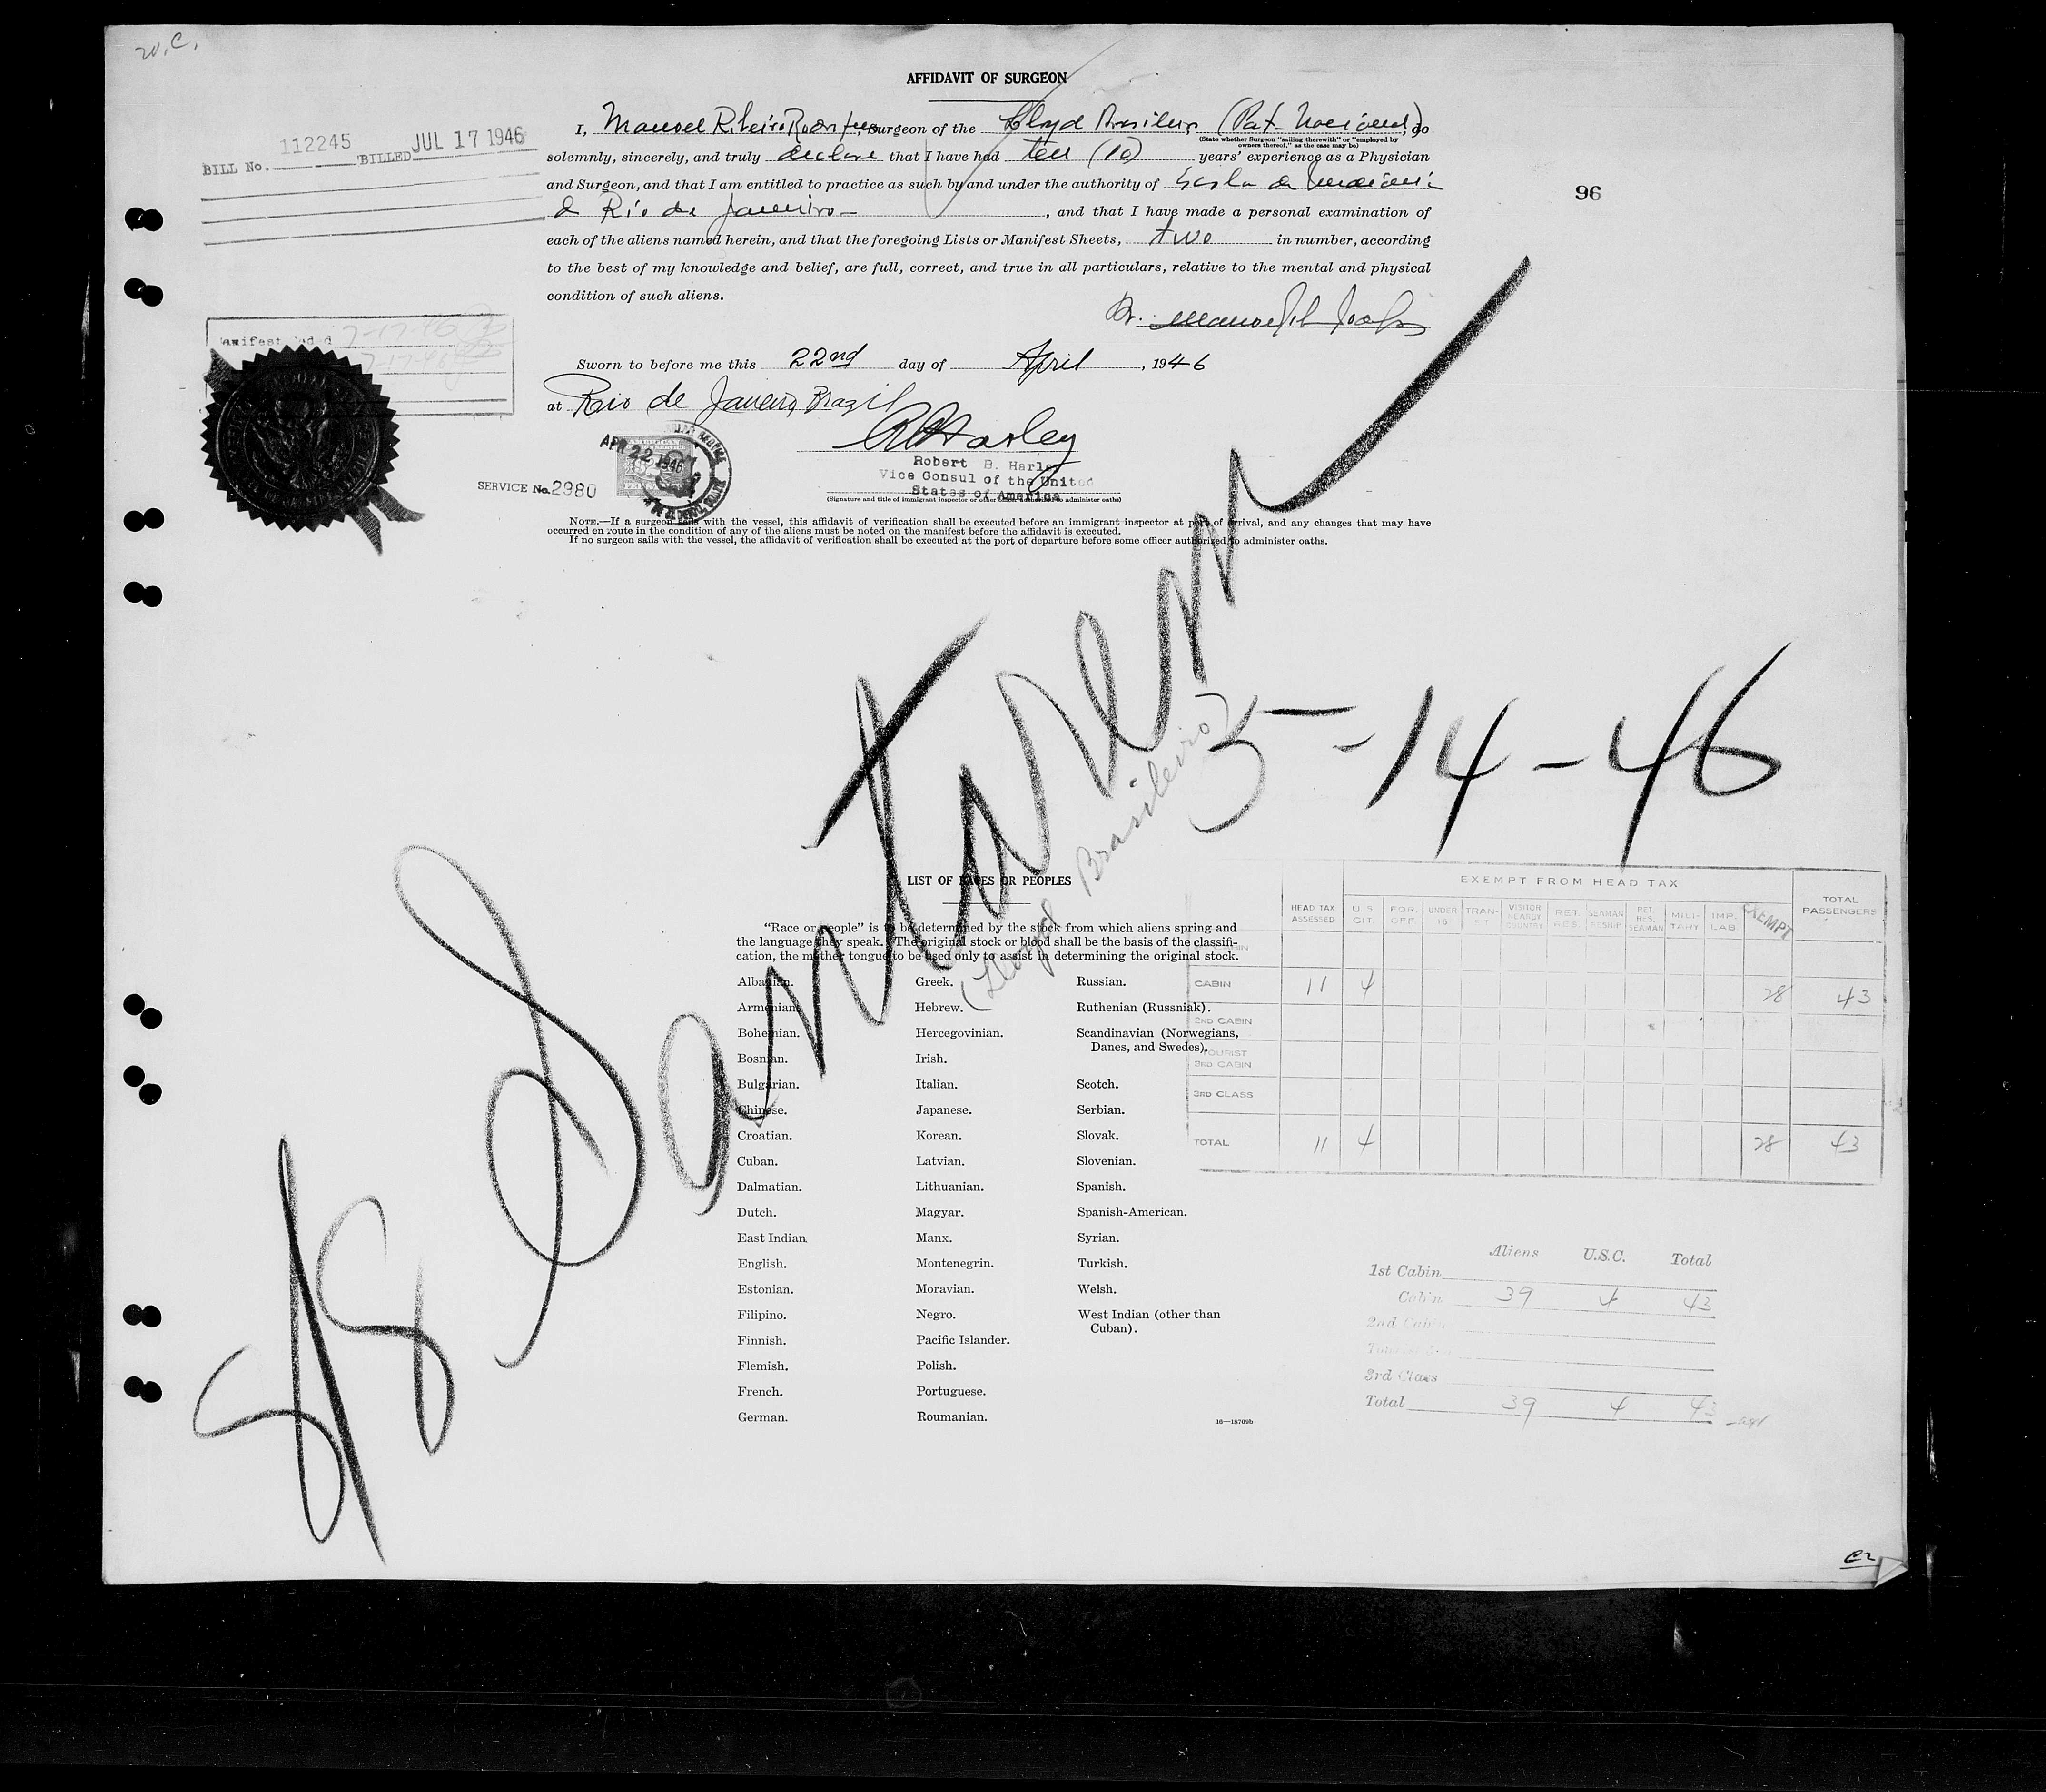 W.C.
AFFIDAVIT OF SURGEON
I, Manoel Ribeiro Rodrigues, Surgeon of the Lloyd Brasileiro (Pat. Nacional), do
(State whether Surgeon "sailing therewith" or "employed by
owners thereof," as the case may be)
solemnly, sincerely, and truly declare that I have had ten (10) years' experience as a Physician
and Surgeon, and that I am entitled to practice as such by and under the authority of
Rio de Janeiro, and that I have made a personal examination of
each of the aliens named herein, and that the foregoing Lists or Manifest Sheets, two in number, according
to the best of my knowledge and belief, are full, correct, and true in all particulars, relative to the mental and physical
condition of such aliens.
Dr.
Sworn to before me this 22nd day of April, 1946
at Rio de Janeiro, Brazil
RBHarley
Robert B. Harley
Vice Consul of the United
States of America
(Signature and title of immigrant inspector or other officer authorized to administer oaths)
BILL No. 112245 BILLED JUL 17 1946
96
7-17-46
7-17-46
AMERICAN
APR 22 1946
SERVICE No. 2980
NOTE.—If a surgeon sails with the vessel, this affidavit of verification shall be executed before an immigrant inspector at port of arrival, and any changes that may have
occurred en route in the condition of any of the aliens must be noted on the manifest before the affidavit is executed.
If no surgeon sails with the vessel, the affidavit of verification shall be executed at the port of departure before some officer authorized to administer oaths.
S/S Santarem
(Lloyd Brasileiro)
5-14-46
LIST OF RACES OR PEOPLES
"Race or people" is to be determined by the stock from which aliens spring and
the language they speak. The original stock or blood shall be the basis of the classifi-
cation, the mother tongue to be used only to assist in determining the original stock.
Albanian.
Armenian.
Bohemian.
Bosnian.
Bulgarian.
Chinese.
Croatian.
Cuban.
Dalmatian.
Dutch.
East Indian.
English.
Estonian.
Filipino.
Finnish.
Flemish.
French.
German.
Greek.
Hebrew.
Hercegovinian.
Irish.
Italian.
Japanese.
Korean.
Latvian.
Lithuanian.
Magyar.
Manx.
Montenegrin.
Moravian.
Negro.
Pacific Islander.
Polish.
Portuguese.
Roumanian.
Russian.
Ruthenian (Russniak).
Scandinavian (Norwegians,
Danes, and Swedes).
Scotch.
Serbian.
Slovak.
Slovenian.
Spanish.
Spanish-American.
Syrian.
Turkish.
Welsh.
West Indian (other than
Cuban).
16—18709b
EXEMPT FROM HEAD TAX
HEAD TAX ASSESSED U.S. CIT. FOR. OFF. UNDER 16 TRANSIT VISITOR NEARBY COUNTRY RET. RES. SEAMAN RESHIP RET. RES. SEAMAN MILITARY IMP. LAB EXEMPT TOTAL PASSENGERS
CABIN 11 4 28 43
2ND CABIN
TOURIST
3RD CABIN
3RD CLASS
TOTAL 11 4 28 43
Aliens U.S.C. Total
1st Cabin
Cabin 39 4 43
2nd Cabin
3rd Class
Total 39 4 43